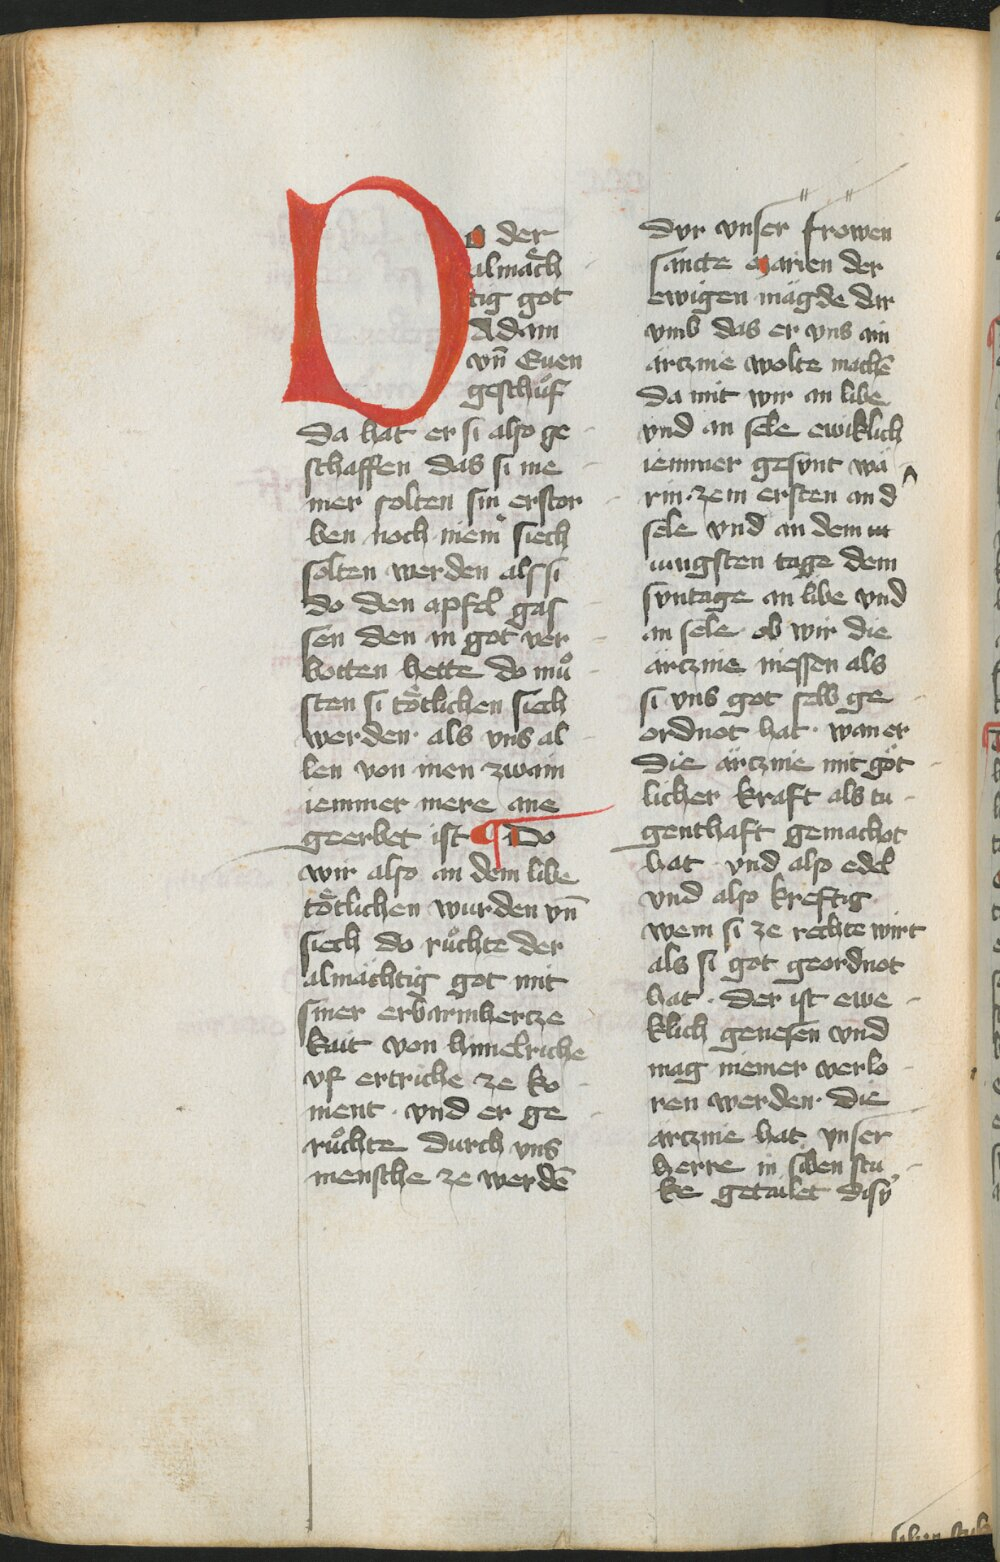 Do der
almaͤch
tig got
Adam
vn̄ Euen
geschuͦf
da hat er si also ge
schaffen das si nie
mer solten sin erstor
ben noch niem̄ siech
solten werden als si
do den apfel gas
sen den in got ver
botten hette do muͦ
sten si toͤtlichen siech
werden · als vns al
len von inen zwain
iemmer mere ane
geerbet ist ¶ Do
wir also an dem libe
toͤtlichen wurden vn̄
siech do ruͦchte der
almaͤchtig got mit
siner erbarmhertze
kait von himelriche
vf ertriche ze ko
ment · vnd er ge
ruͦchte durch vns
mensche ze werdē
dvr vnser frowen
sancte marien der
ewigen mägde dar
vmb das er vns ain
arcznie wolte machē
da mit wir an libe
vnd an sele ewiklich
iemmer gesvnt wa
rin · zem ersten an d
sele vnd an dem iu
iungsten tage dem
svntage an libe vnd
an sele · ob wir die
ärcznie niessen als
si vns got selb ge
ordnot hat · wan er
die ärcznie mit göt
licher kraft als tu
genthaft gemachot
hat vnd also edel
vnd also kreftig
wem si ze rechte wirt
als si got geordnot
hat · der ist ewe
klich genesen vnd
mag niemer verlo
ren werden · die
arcznie hat vnser
herre in siben stu
ke getailet disv́